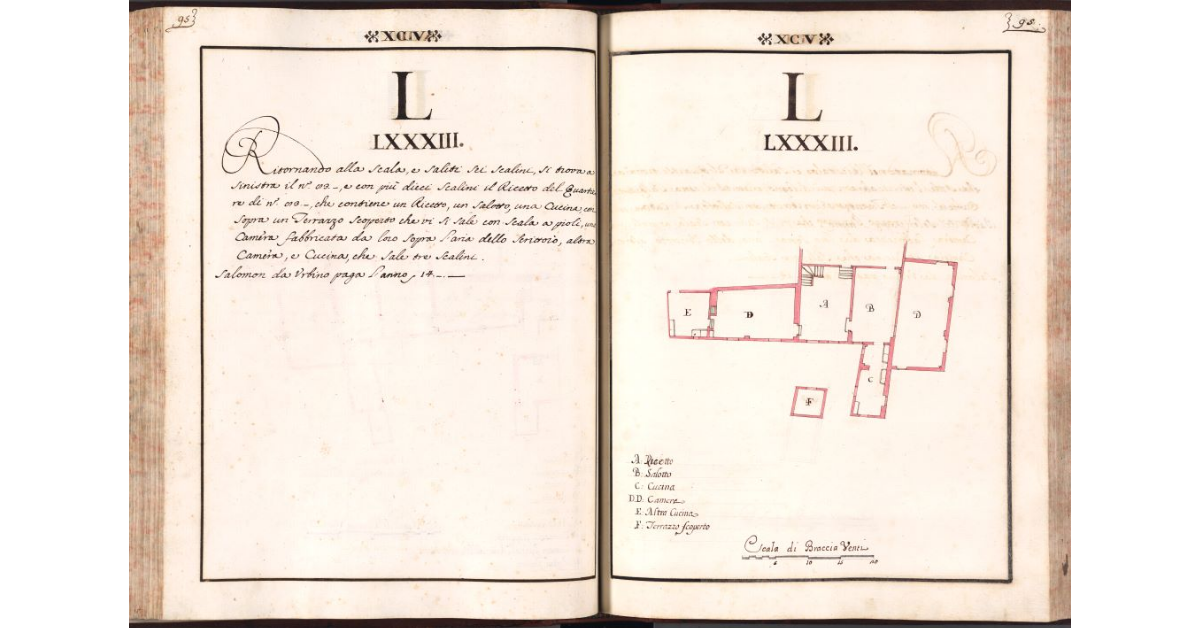 95
XCV
L
LXXXIII.
Ritornando alla Scala, e saliti Sei Scalini, si trova a
Sinistra il n.º 69_, e con più dieci Scalini il Ricetto del Quarti=
re di n.º 69_, che contiene un Ricetto, un Salotto, una Cucina con
Sopra un Terrazzo Scoperto che vi si Sale con Scala a pioli, una
Camera fabbricata da loro Sopra l'aria dello Scrittoio, altra
Camera, e Cucina, che Sale tre Scalini.
Salomon da Urbino paga l'anno 14_._
95
XCV
L
LXXXIII.
E
D
A
B
D
C
F
A. Ricetto
B. Salotto
C. Cucina
D.D. Camere
E. Altra Cucina
F. Terrazzo scoperto
Scala di Braccia Venti
5 10 15 20